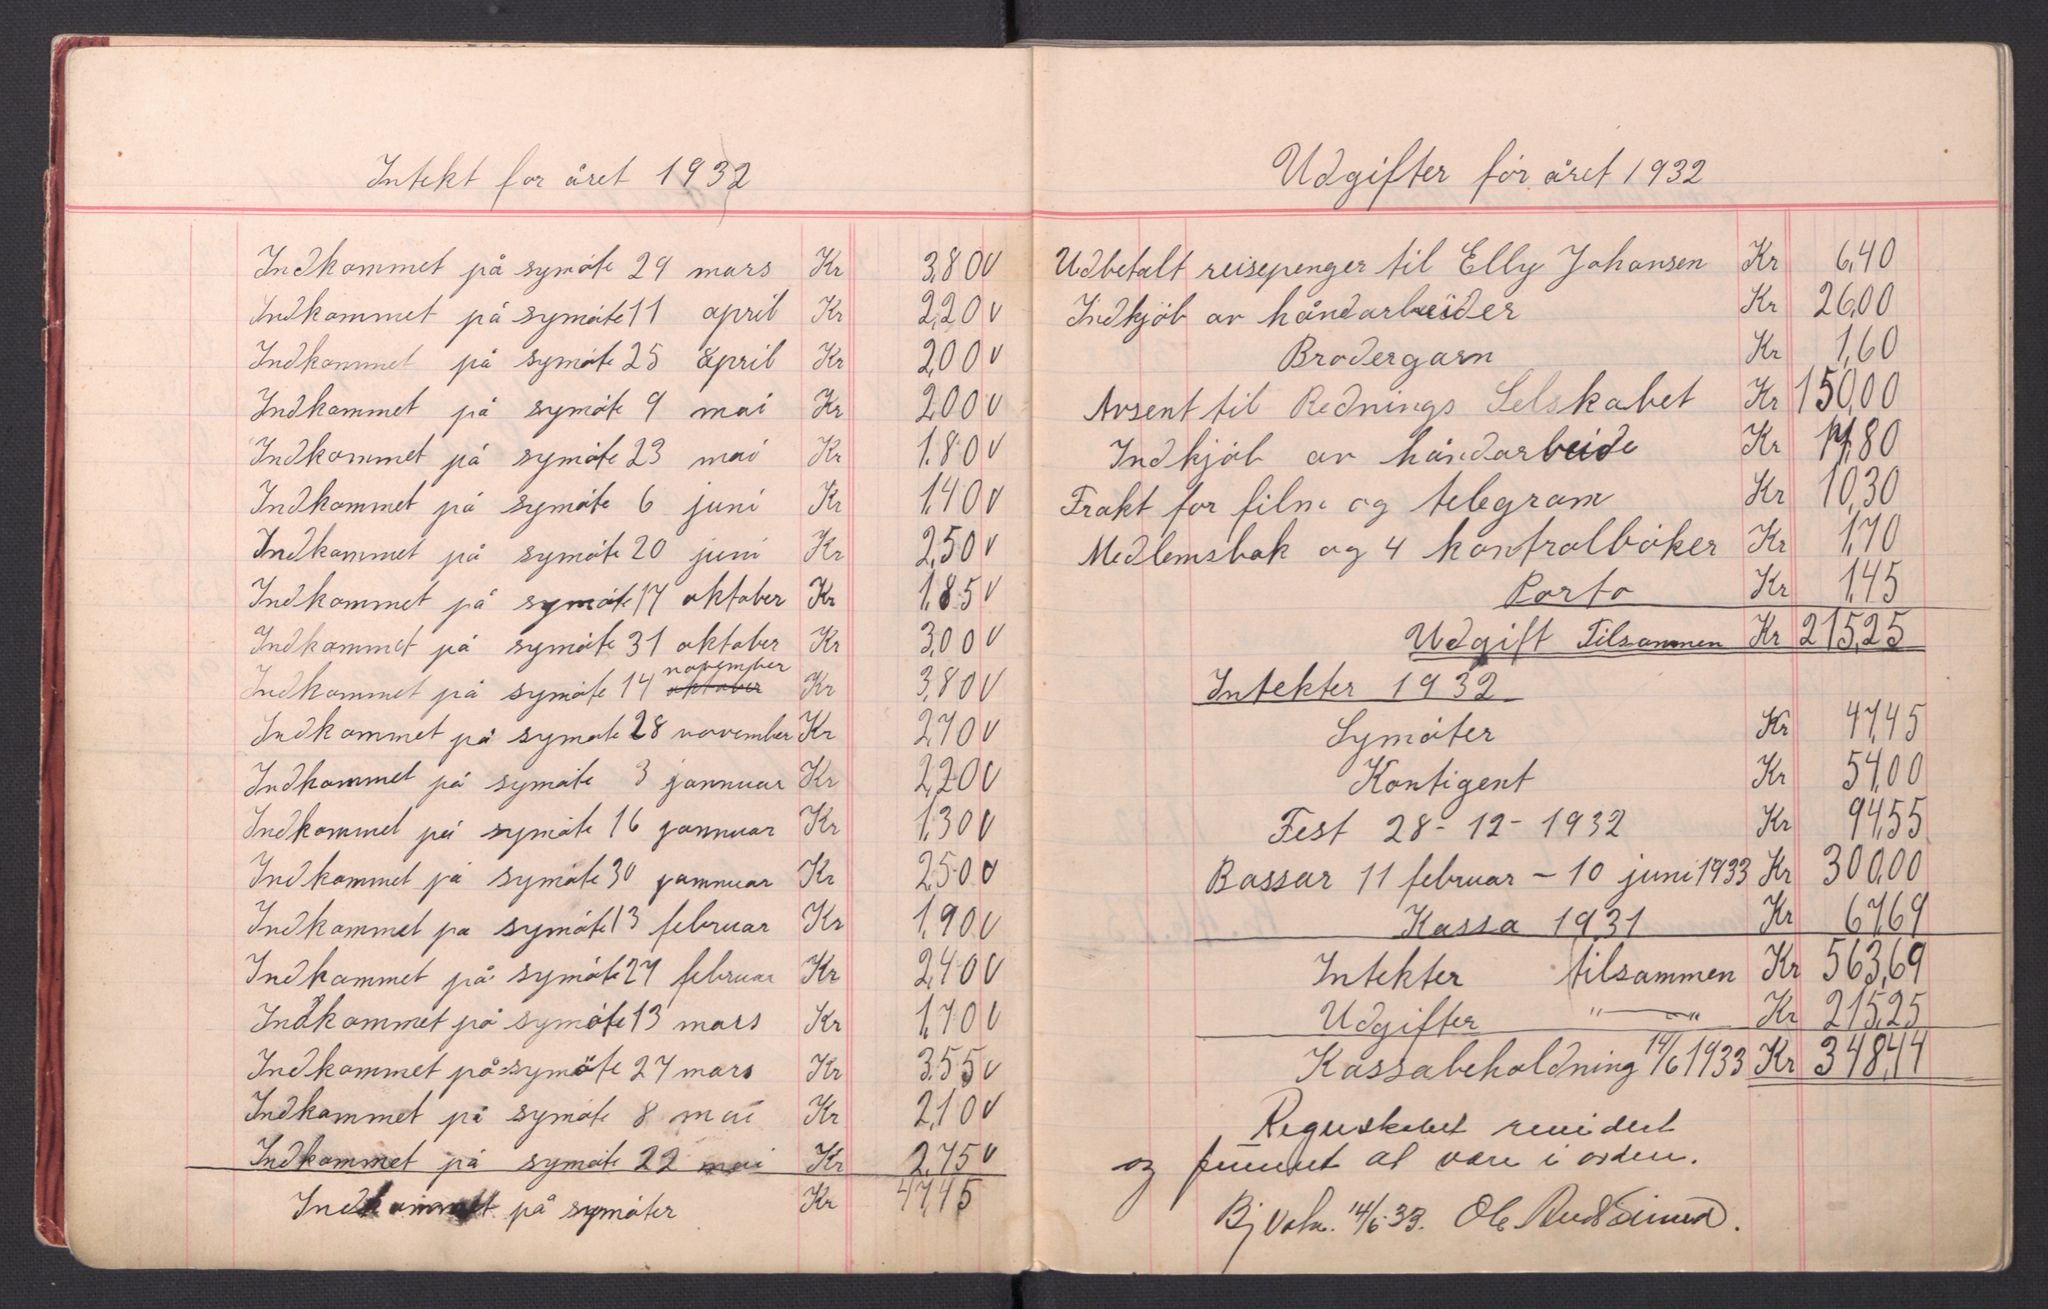 Intekt for året 1932
Indkommet på symöte 29 mars Kr 3,80 v
Indkommet på symöte 11 april Kr 2,20 v
Indkommet på symöte 25 april Kr 2,00 v
Indkommet på symöte 9 mai Kr 2,00 v
Indkommet på symöte 23 mai Kr 1,80 v
Indkommet på symöte 6 juni Kr 1,40 v
Indkommet på symöte 20 juni Kr 2,50 v
Indkommet på symöte 17 oktober Kr 1,85 v
Indkommet på symöte 31 oktober Kr 3,00 v
Indkommet på symöte 14 oktober november Kr 3,80 v
Indkommet på symöte 28 november Kr 2,70 v
Indkommet på symöte 3 jannuar Kr 2,20 v
Indkommet på symöte 16 jannuar Kr 1,30 v
Indkommet på symöte 30 jannuar Kr 2,50 v
Indkommet på symöte 13 februar Kr 1,90 v
Indkommet på symöte 27 februar Kr 2,40 v
Indkommet på symöte 13 mars Kr 1,70 v
Indkommet på symöte 27 mars Kr 3,55 v
Indkommet på symöte 8 mai Kr 2,10 v
Indkommet på symöte 22 mai Kr 2,75 v
Indkommet på symöter Kr 47,45
Udgifter för året 1932
Udbetalt reisepenger til Elly Johansen Kr 6,40
Indkjöb av håndarbeider Kr 26,00
Brodergarn Kr 1,60
Avsent til Rednings Selskabet Kr 150,00
Indkjöb av håndarbeide Kr 17,80
Frakt for film og telegram Kr 10,30
Medlemsbok og 4 kontrolböker Kr 1,70
Porto Kr 1,45
Udgift Tilsammen Kr 215,25
Intekter 1932
Symöter Kr 47,45
Kontigent Kr 54,00
Fest 28-12-1932 Kr 94,55
Bassar 11 februar - 10 juni 1933 Kr 300,00
Kassa 1931 Kr 67,69
Intekter tilsammen Kr 563,69
Udgifter " — " Kr 215,25
Kassabeholdning 14/6 1933 Kr 348,44
Regnskabet revidert
og funnet at være i orden.
14/6.33. Ole